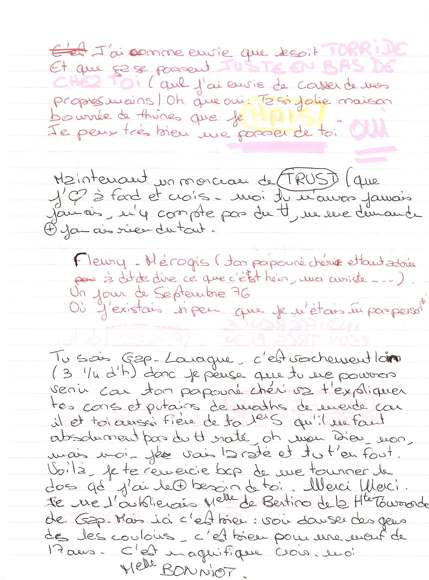 J'ai comme envie que ce soit TORRIDE
Et que ça se passent JUSTE EN BAS DE
CHEZ TOI (que j'ai envie de casser de mes
propres mains! Oh que oui Ta si jolie maison
bourrée de thunes que je HAIS!
Je peux très bien me passer de toi OUI
Maintenant un morceau de TRUST (que
j'♡ à fond et crois-moi tu n'auras jamais
jamais, n'y compte pas du tt, ne me demande
⊕ jamais rien du tout.
Fleury-Mérogis (ton papouné chéri et tant adoré
à dit de dire ce que c'était hein, ma amiste ---)
Un jour de Septembre 76
Où j'existais si peu que je n'étais personne
Tu sais Gap-Laragne, c'est vachement loin
(3 1/4 d'h) donc je pense que tu ne pourras
venir car ton papouné chéri va t'expliquer
tes cons et putains de maths de merde car
il et toi aussi fière de ta 1ère S qu'il ne faut
absolument pas du tt raté, oh mon Dieu, non,
mais moi je vais la raté et tu t'en fout.
Voilà, je te remercie bcp de me tourner le
dos qd j'ai le ⊕ besoin de toi. Merci Merci.
Je ne l'oublierais Melle de Bertino de la Hte Tourronde
de Gap. Mais ici c'est bien: voir danser des gens
ds les couloirs, c'est bien pour une mort de
17 ans. C'est magnifique crois-moi
Melle BONNIOT.